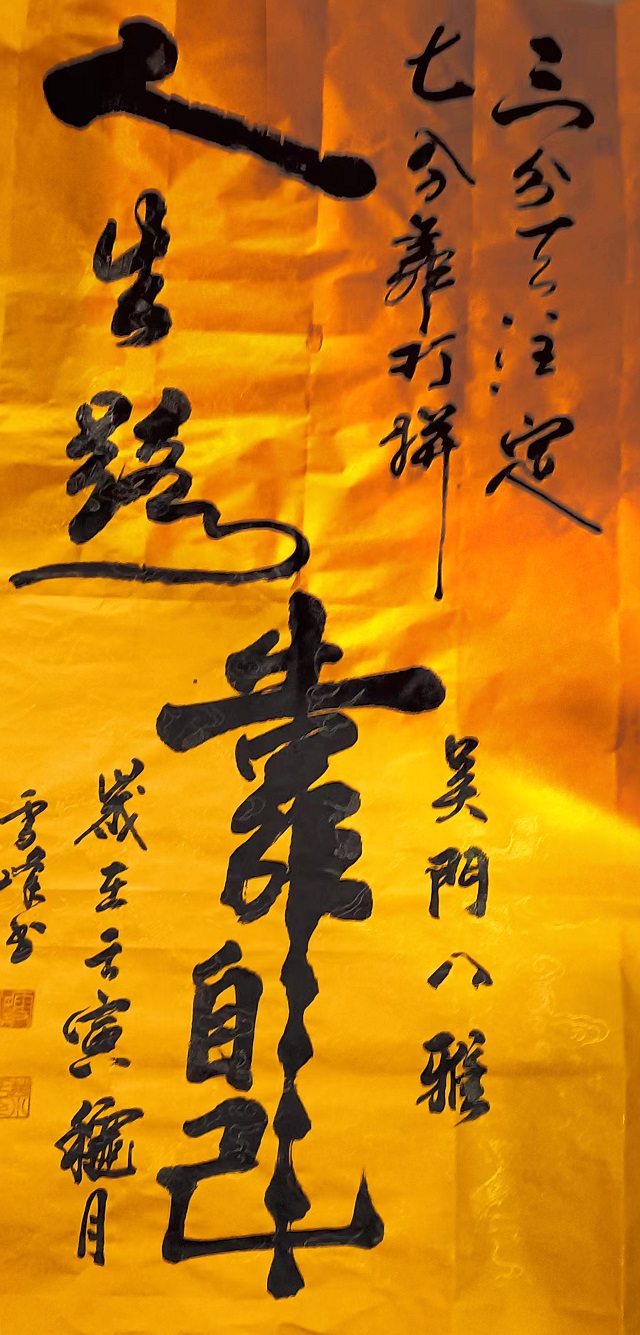 三分天注定
七分靠打拼
吴門八雅
人生路
靠自己
歲在壬寅穐月
雪峰书